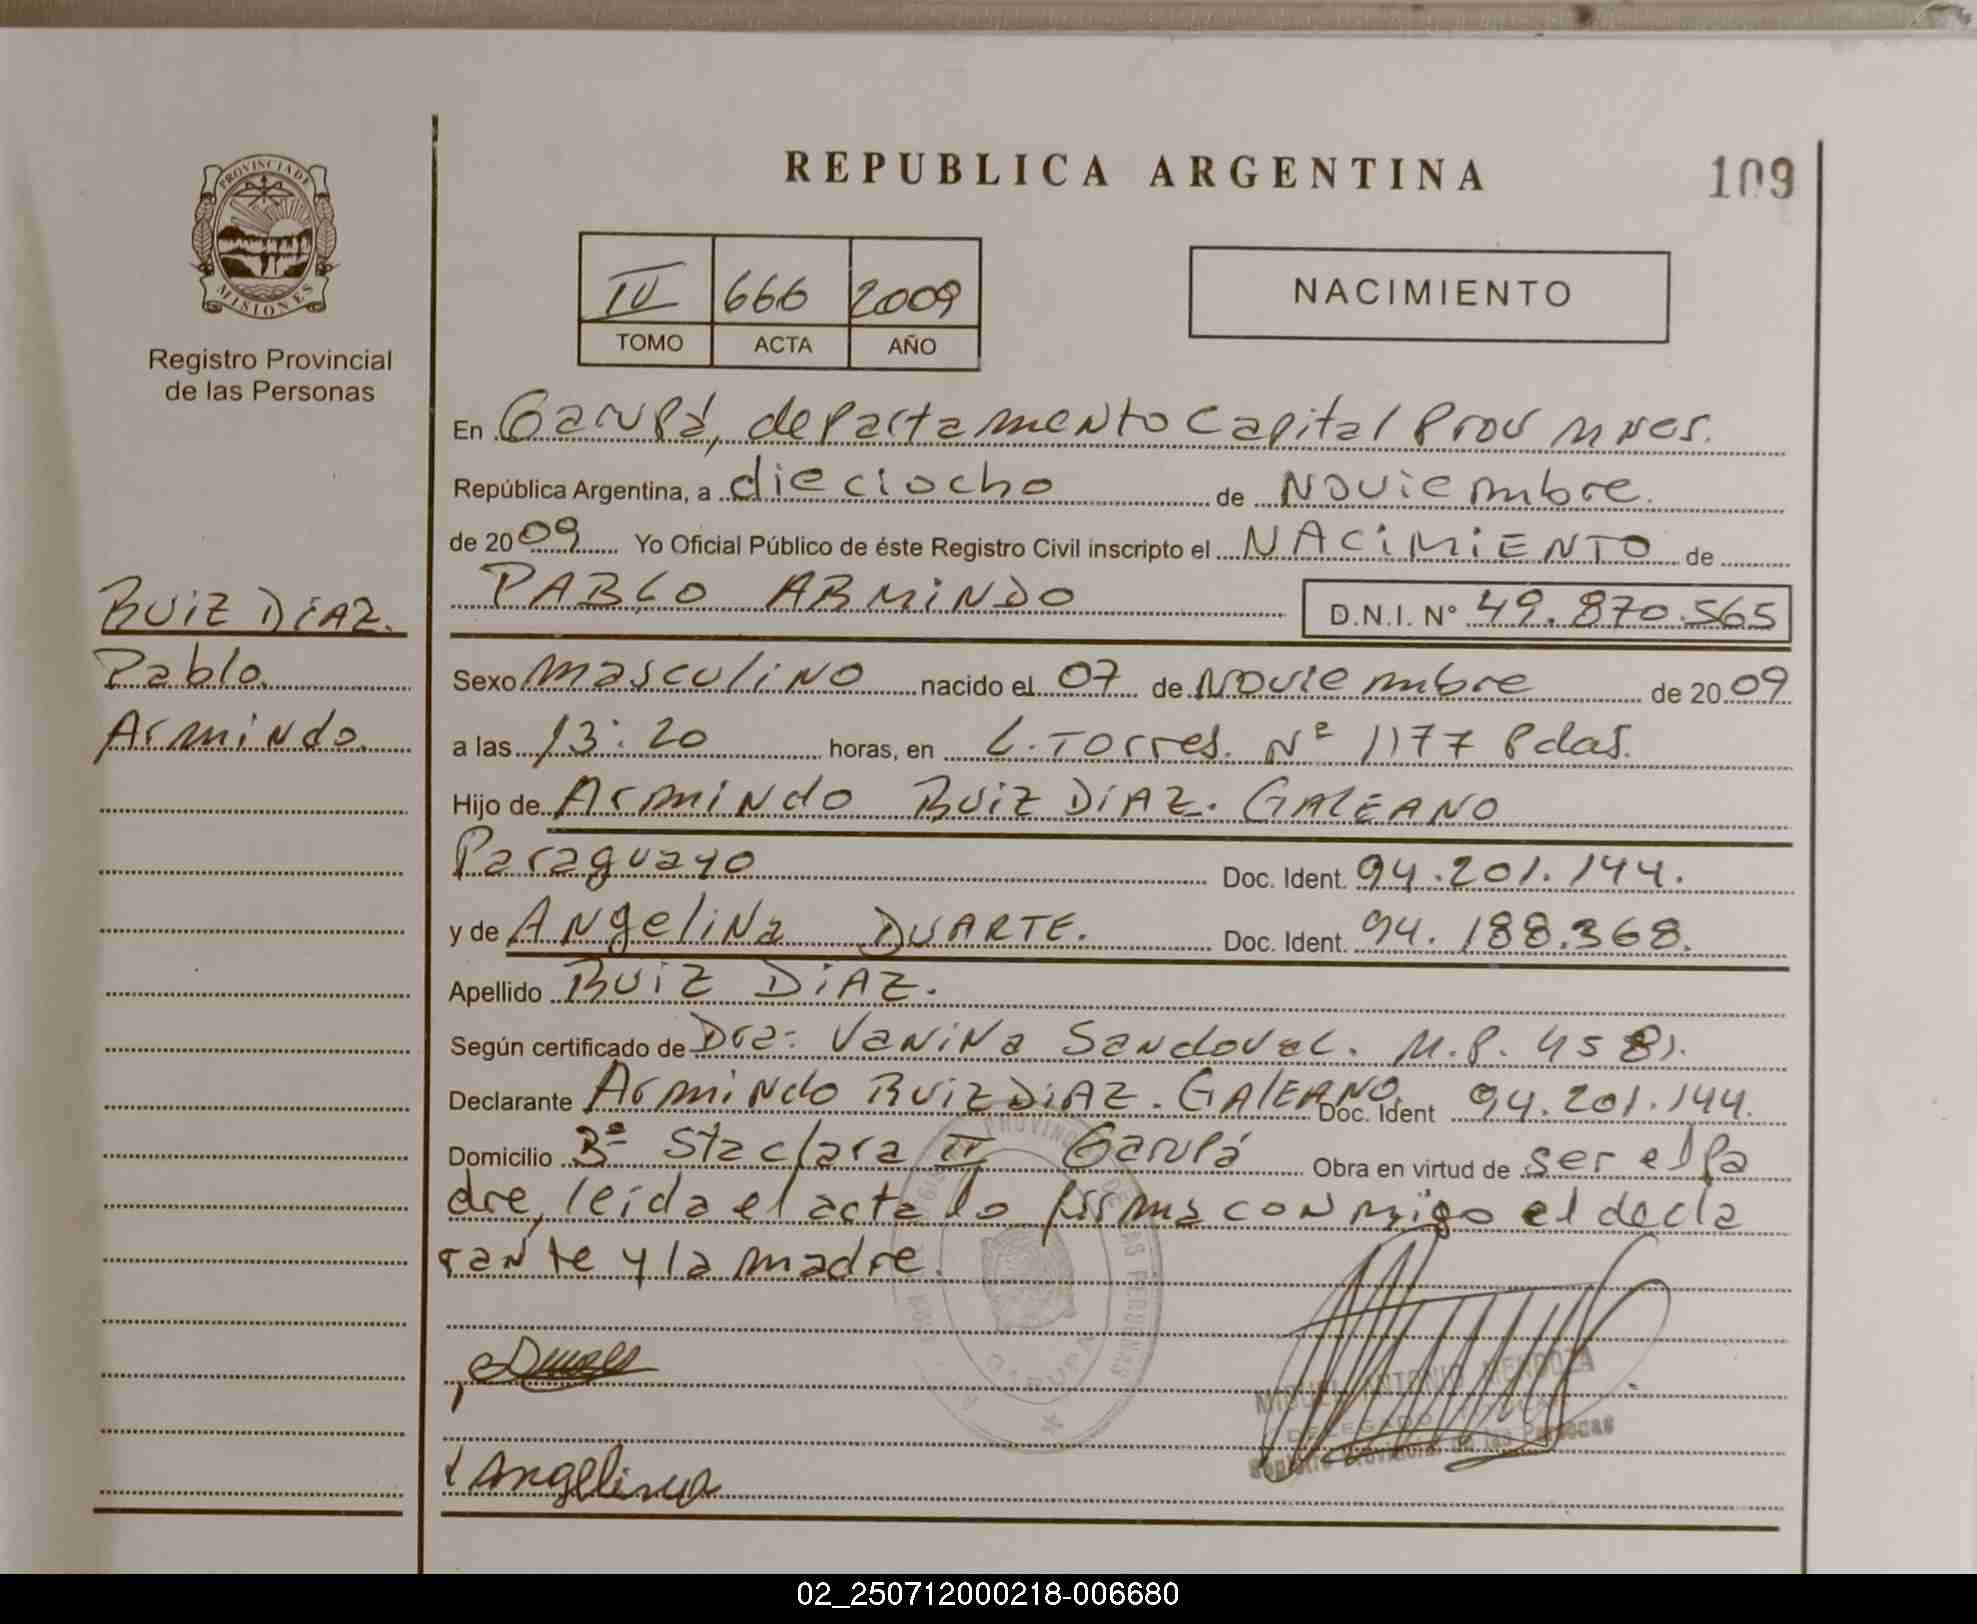 REPUBLICA ARGENTINA
109
PROVINCIA DE
MISIONES
Registro Provincial
de las Personas
IV 666 2009
TOMO ACTA AÑO
NACIMIENTO
En Garupá, departamento Capital Prov Mnes.
República Argentina, a dieciocho de Noviembre.
de 2009 Yo Oficial Público de éste Registro Civil inscripto el NACIMIENTO de
PABLO ARMINDO D.N.I. Nº 49.870.565
RUIZ DIAZ.
Pablo
Armindo.
Sexo masculino nacido el 07 de Noviembre de 2009
a las 13:20 horas, en L. Torres. Nº 1177 Pdas.
Hijo de Armindo RUIZ DIAZ. GALEANO
Paraguayo Doc. Ident. 94.201.144.
y de Angelina DUARTE. Doc. Ident. 94.188.368.
Apellido RUIZ DIAZ.
Según certificado de Dra: Vanina Sandoval. M.P. 4581.
Declarante Armindo RUIZ DIAZ. GALEANO. Doc. Ident 94.201.144.
Domicilio Bº Sta clara IV Garupá Obra en virtud de ser el pa
dre, leida el acta lo firma conmigo el decla
rante y la madre.
Angelina
MIGUEL ANTONIO MENDOZA
DELEGADO TITULAR
Registro Provincial de las Personas
GARUPA
02_250712000218-006680